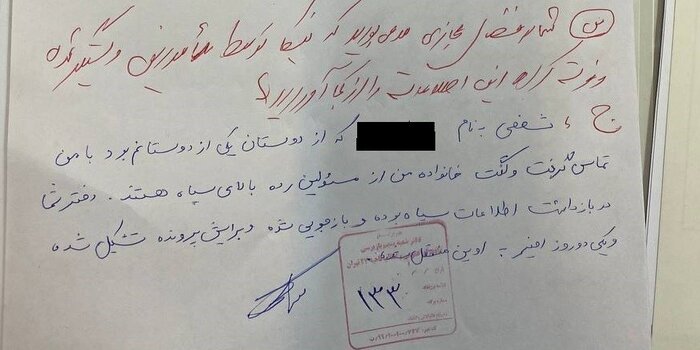 س) شما در فضای مجازی مدعی بودید که نیکا توسط مأمورین دستگیر شده
و فوت کرده این اطلاعات را از کجا آوردید؟
ج) شخصی به نام که از دوستان یکی از دوستانم بود با من
تماس گرفت و گفت خانواده من از مسئولین رده بالای سپاه هستند. دختر شما
در بازداشت اطلاعات سپاه بوده و بازجویی شده و برایش پرونده تشکیل شده
و یکی دو روز اخیر به اوین منتقل شده.
۱۳۳۰